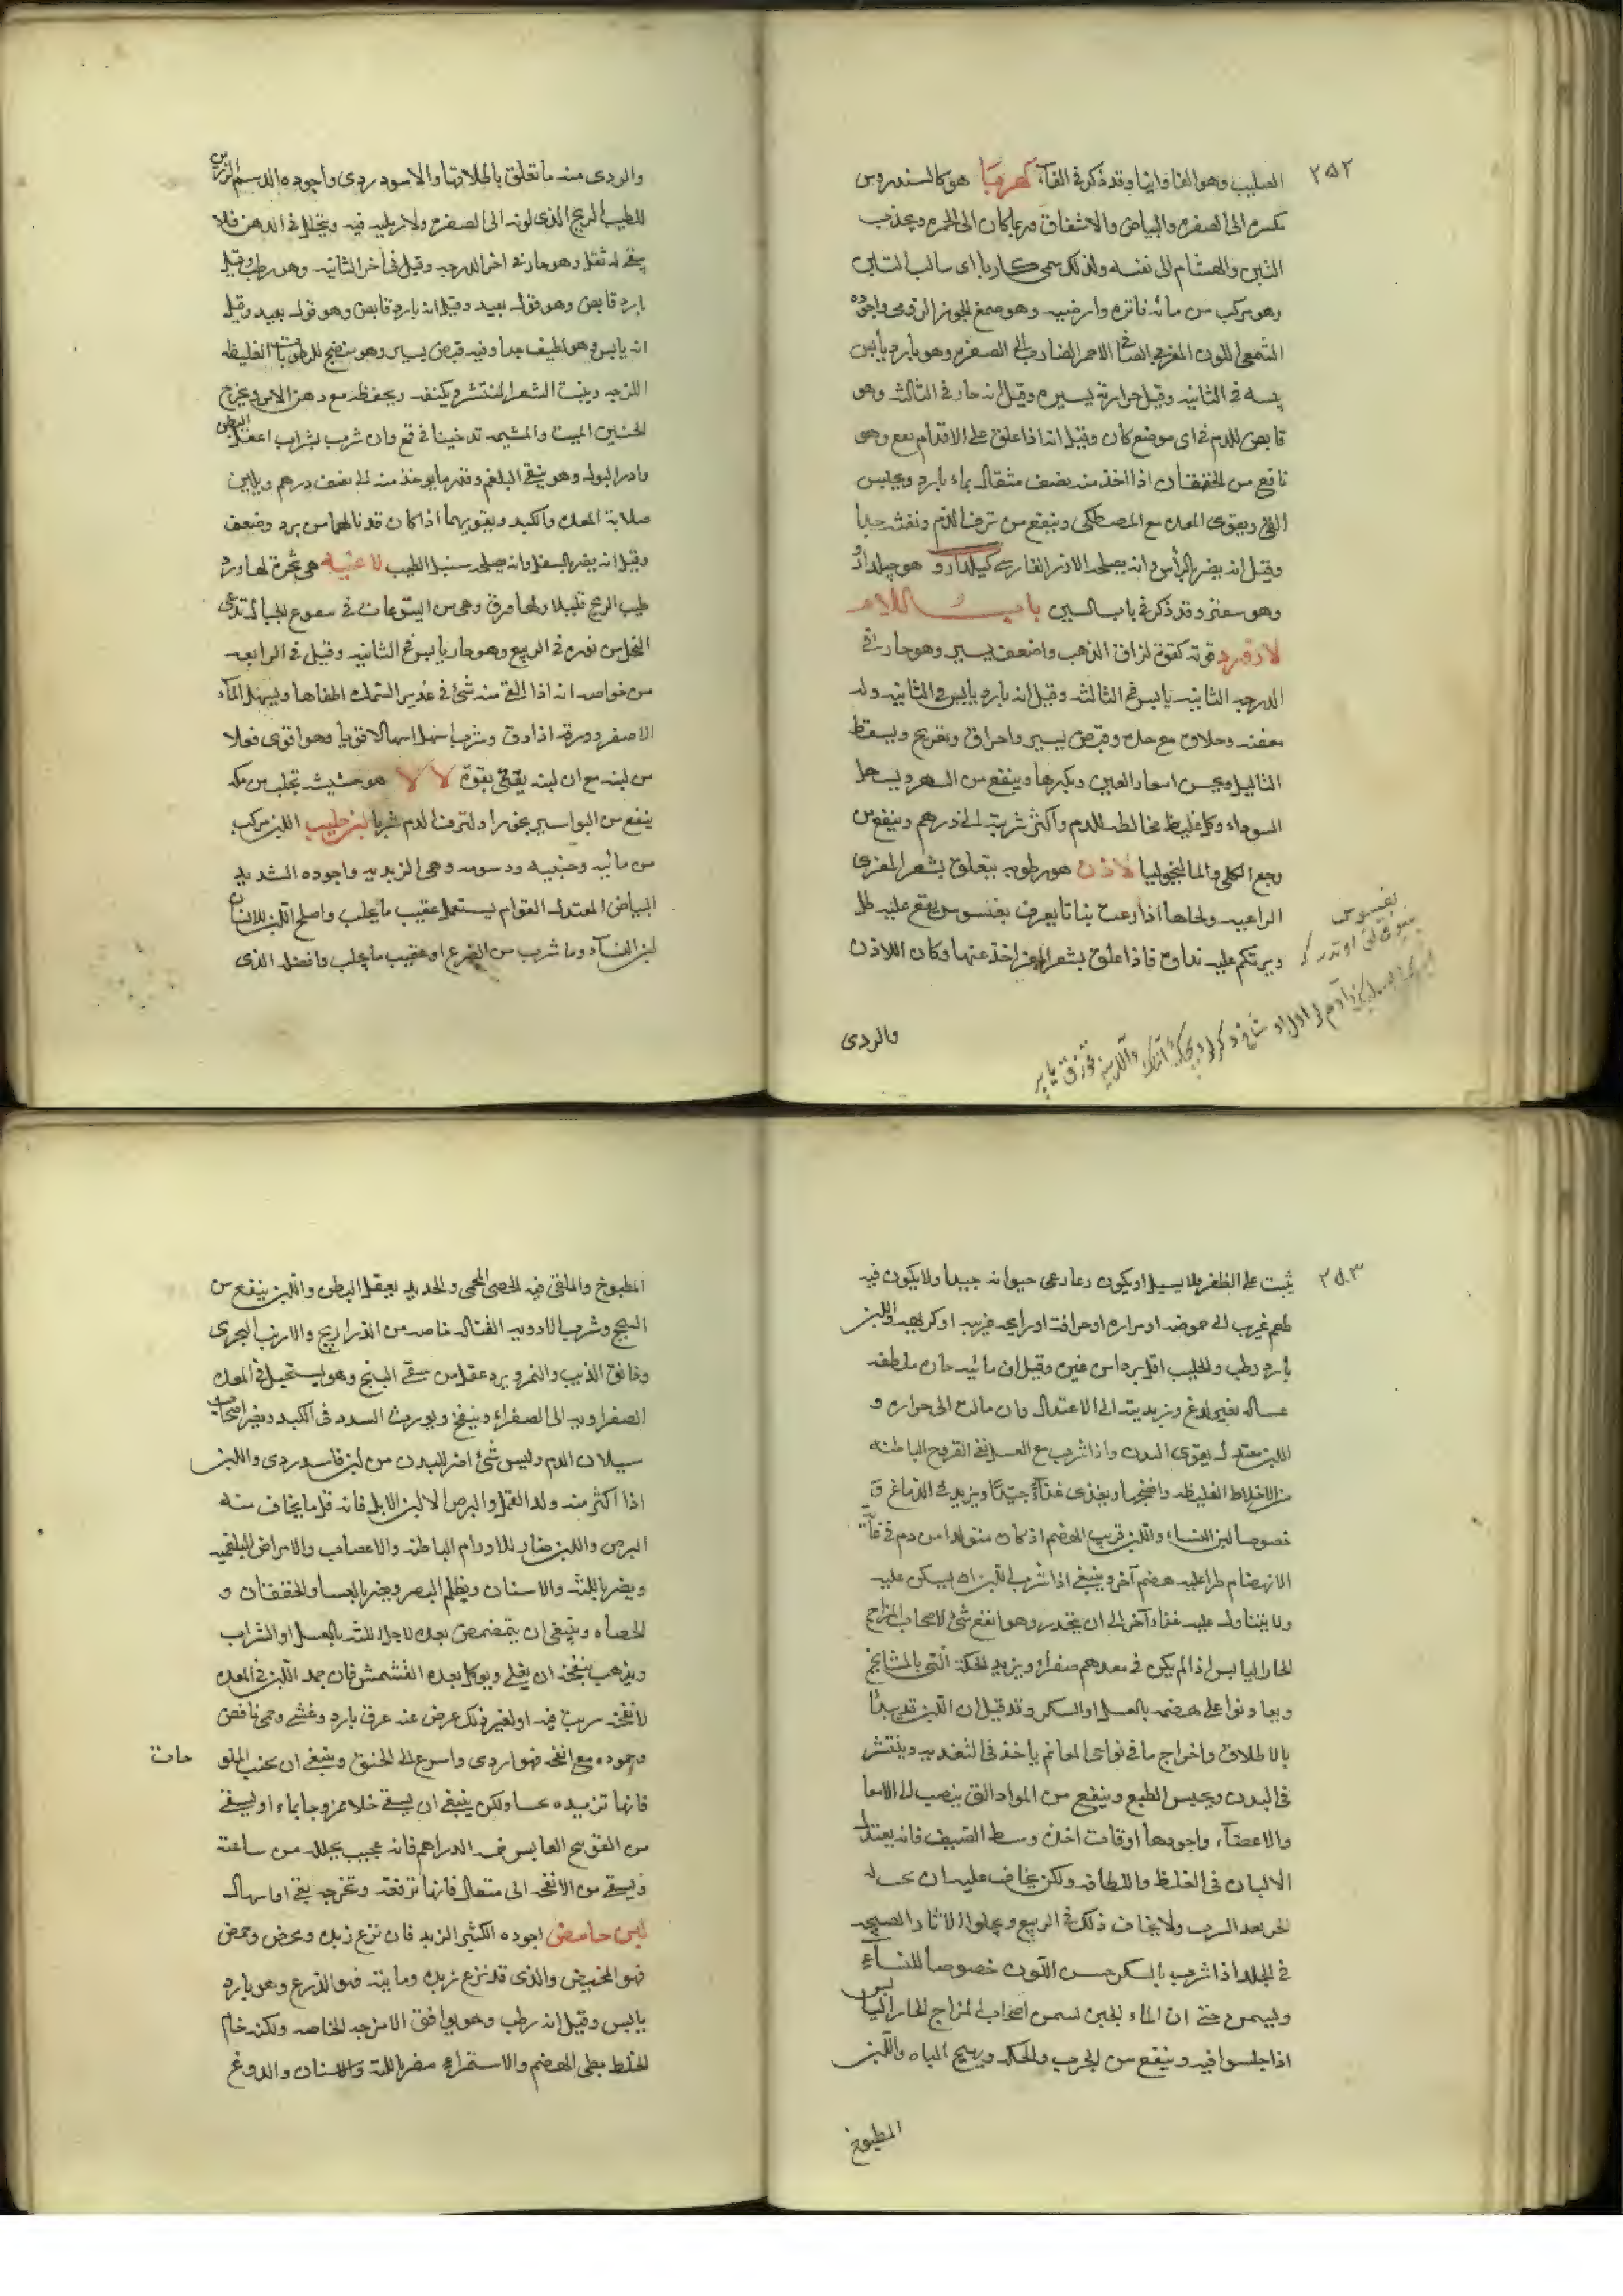 ٢٥٢
الصليب وهو الفاوانيا وقد ذكر في الفآء كهربا هو كالسندروس
مكسره الى الصفره والبياض والاشفاق وربما كان الى الحمره ويجذب
التبن والهشام الى نفسه ولذلك سمى كاربا اى سالب التبن
وهو مركب من مائه فاتره وارضيه وهو صمغ الجوز الرومى واجوده
الشمعى اللون المغربى الصافى الاحمر الضارب الى الصفره وهو بارد يابس
يبسه فى الثانيه وقيل حرارته يسيره وقيل انه حار فى الثالثه وهو
قابض للدم فى اى موضع كان وقيل انه اذا علق على الاقدام نفع وهو
نافع من الخفقان اذا اخذ منه نصف مثقال بماء بارد ويحبس
القئ ويقوى المعده مع المصطكى وينفع من نزف الدم ونفثه جدا
وقيل انه يضر بالرأس وانه يصلحه الارز الفارسى كيلدارو هو جيلدارو
وهو سعتر وقد ذكر فى باب السين باب اللام
لازورد قوته كقوة لزاق الذهب واضعف يسير وهو حار فى
الدرجه الثانيه يابس فى الثالثه وقيل انه بارد يابس فى الثانيه وله
معفنه وجلاؤه مع حده وقبض يسير واحراق وتقريح ويسقط
الثاليل ويحسن اشعار العين ويكثرها وينفع من السهر ويسهل
السوداء وكل غليظ مخالط للدم واكثر شربته الى درهم وينفع من
وجع الكلى والماليخوليا لاذن هو رطوبه يتعلق بشعر المعزى
الراعيه ولحاها اذا رعت نباتا يعرف بقنسوس يقع عليه طل
ويرتكم عليه نداوه فاذا علق بشعر المعز اخذ عنها وكان اللاذن
والردى
والردى منه ما تعلق باظلافها والاسود ردى واجوده الدسم الرزين
الطيب الريح الذى لونه الى الصفره ولا رمليه فيه ويتحلل فى الدهن فلا
يبقى له ثفل وهو حار فى اخر الدرجه وقيل فى آخر الثانيه وهو رطب وقيل
بارد قابض وهو قول بعيد وقيل انه بارد قابض وهو قول بعيد وقيل
انه يابس وهو لطيف جدا وفيه قبض يسير وهو منضج للرطوبات الغليظه
اللزجه وينبت الشعر المنتشر ويكثفه ويحفظه مع دهن الاس ويخرج
الجنين الميت والمشيمه تدخينا فى قمع وان شرب بشراب اعقل البطن
وادر البول وهو ينقى البلغم وقدر ما يوخذ منه الى نصف درهم ويلين
صلابة المعده والكبد ويقويهما اذا كان قد نالهما من برد وضعف
وقيل انه يضر بالسفل وانه يصلحه سنبل الطيب لاعيه هى شجرة لها ورد
طيب الريح قليلا ولها ورق وهى من اليتوعات فى سفوح الجبال ترعى
النحل من نوره فى الربيع وهو حار يابس فى الثانيه وقيل فى الرابعه
من خواصه انه اذا القى منه شئ فى غدير السمك اطفاها ويسهل المآء
الاصفر وورقه اذا دق وشرب اسهل اسهالا قويا وهو اقوى فعلا
من لبنه مع ان لبنه يقئ بقوة لالا هو حشيش تجلب من مكه
ينفع من البواسير بخورا ولنزف الدم شربا لبن حليب اللبن مركب
من مائيه وجبنيه ودسومه وهى الزبديه واجوده الشديد
البياض المعتدل القوام يستعمل عقيب ما يحلب واصلح اللبن للانسان
لبن النسآء وما شرب من الضرع او عقيب ما يحلب وافضله الذى
٢٥٣
يثبت على الظفر ولا يسيل او يكون رعا رعى حيوانه جيدا ولا يكون فيه
طعم غريب الى حموضه او مراره او حرافة او رايحه غريبه او كريهه واللبن
بارد رطب والحليب اقل بردا من غيره وقيل ان مائيه حاره ملطفه
غساله بغير لدغ وزبديته الى الاعتدال وان مالت الى حراره و
اللبن معتدل يقوى البدن واذا شرب مع العسل نقى القروح الباطنه
من الاخلاط الغليظه وانضجها ويغذى غذآءً جيدا ويزيد فى الدماغ و
خصوصا لبن النساء واللبن قريب الهضم اذ كان متولدا من دم فى غاية
الانهضام طرأ عليه هضم آخر وينبغى اذا شرب اللبن ان يسكن عليه
ولا يتناول عليه غذاء آخر الى ان ينحدر وهو انفع شئ لاصحاب المزاج
الحار اليابس اذا لم يكن فى معدهم صفراء ويزيد الحكة التى بالمشايخ
ويعاونوا على هضمه بالعسل او السكر وقد قيل ان اللبن قد يبدأ
بالاطلاق واخراج ما فى نواحى المعا ثم ياخذ فى التغذيه وينتشر
فى البدن ويحبس الطبع وينفع من المواد التى ينصب الى الامعا
والاعضآء واجودها اوقات اخذه وسط الصيف فانه يعتدل
الالبان فى الغلظ واللطافه ولكن يخاف عليه ان يحيله
الحر بعد الشرب ولا يخاف ذلك فى الربيع ويجلو الاثار القبيحه
فى الجلد اذا شرب بالسكر حسن اللون خصوصا للنسآء
ويسمن حتى ان الماء الجبن يسمن اصحاب المزاج الحار اليابس
اذا جلسوا فيه وينفع من الجرب والحكه ويهيج الباه واللبن
المطبوخ
المطبوخ والملقى فيه الحصى المحمى والحديد يعقل البطن واللبن ينفع من
السحج وشرب الادويه القتاله خاصه من الذراريح والارنب البحرى
وخانق الذئب والنمر ويرد عقل من سقى البنج وهو يستحيل فى المعده
الصفراويه الى الصفراء وينفخ ويورث السدد فى الكبد ويضر اصحاب
سيلان الدم وليس شئ اضر للبدن من لبن فاسد ردى واللبن
اذا اكثر منه ولد القمل والبرص الا لبن الابل فانه قل ما يخاف منه
البرص واللبن ضار للاورام الباطنه والاعصاب والامراض البلغميه
ويضر باللثه والاسنان ويظلم البصر ويضر بالعشا والخفقان و
الحصاه وينبغى ان يتمضمض بعده لاجل اللثه بالعسل او الشراب
ويذهب بنفخه ان يغلى ويوكل بعده المشمش فان جمد اللبن فى المعده
لانفحه شربت فيه او لغير ذلك عرض عنه عرق بارد وغشى وحمى نافض
وجموده مع انفحه فهو اردى واسرع الى الخنق وينبغى ان يجتنب الملو حات
فانها تزيده تجبنا ولكن ينبغى ان يسقى خلا ممزوجا بماء او يسقى
من الفوتنج اليابس خمسه الدراهم فانه عجيب يحلله من ساعته
ويسقى من الانفحه الى مثقال فانها ترققه وتخرجه بقئ او اسهال
لبن حامض اجوده الكثير الزبد فان نزع زبده ومخض وحمض
فهو المخيض والذى قد نزع زبده ومايته فهو الدوغ وهو بارد
يابس وقيل انه رطب وهو يوافق الامزجه الحاصه ولكنه خام
الخلط بطى الهضم والاستمراء مضر باللثة والاسنان والدوغ